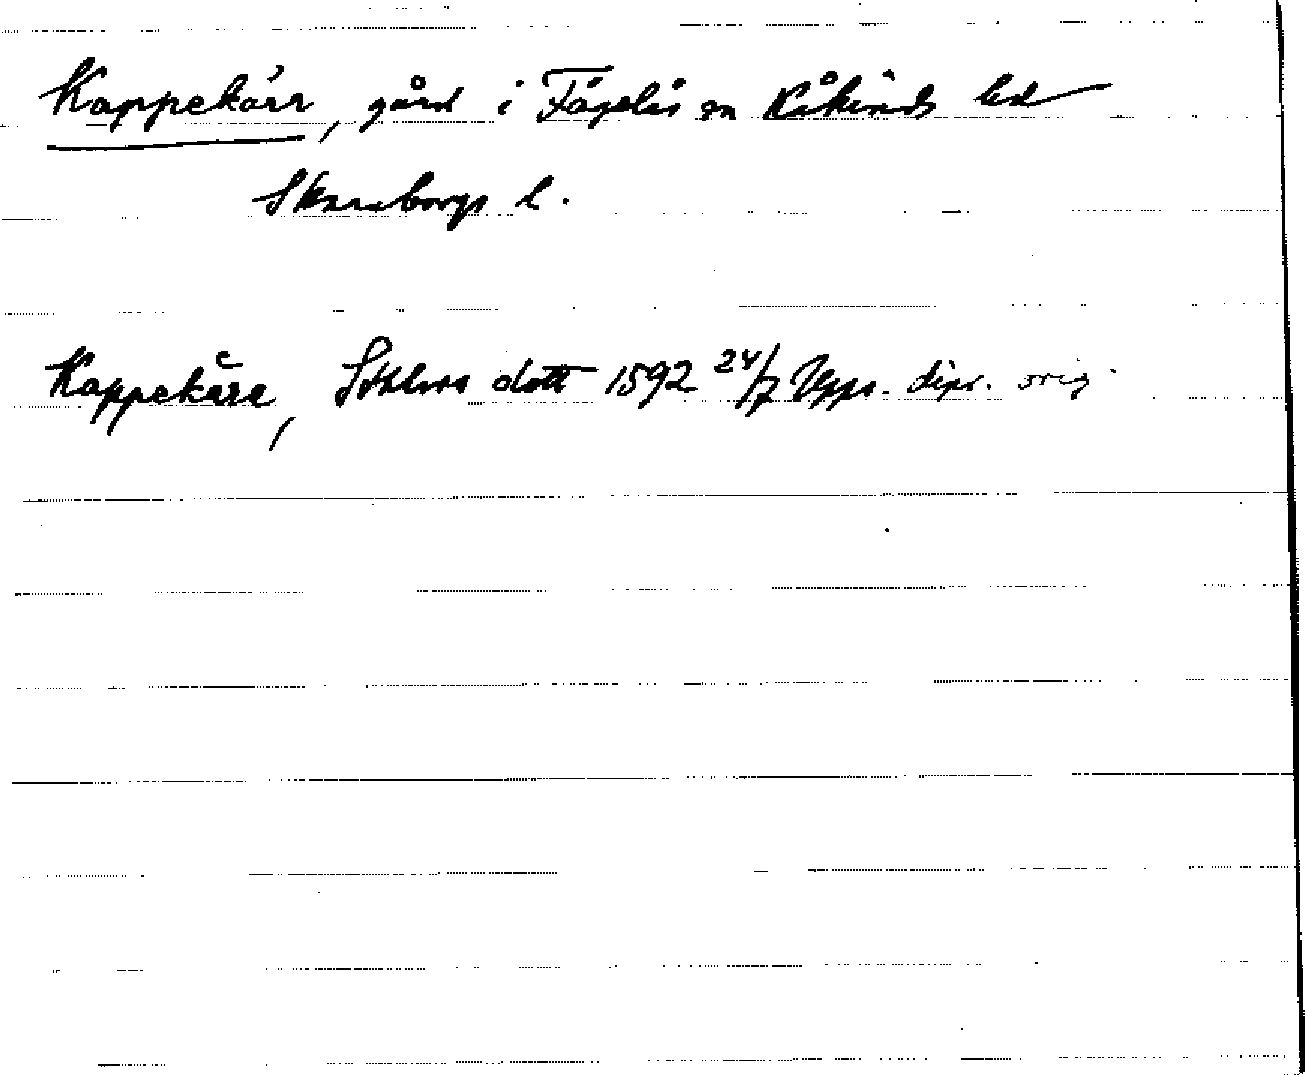 Kappekärr, gård i Fågelås sn Kåkinds hd
Skaraborgs l.
Kappekäre, Sthlms slott 1592 24/7 Upps. dipl. orig.